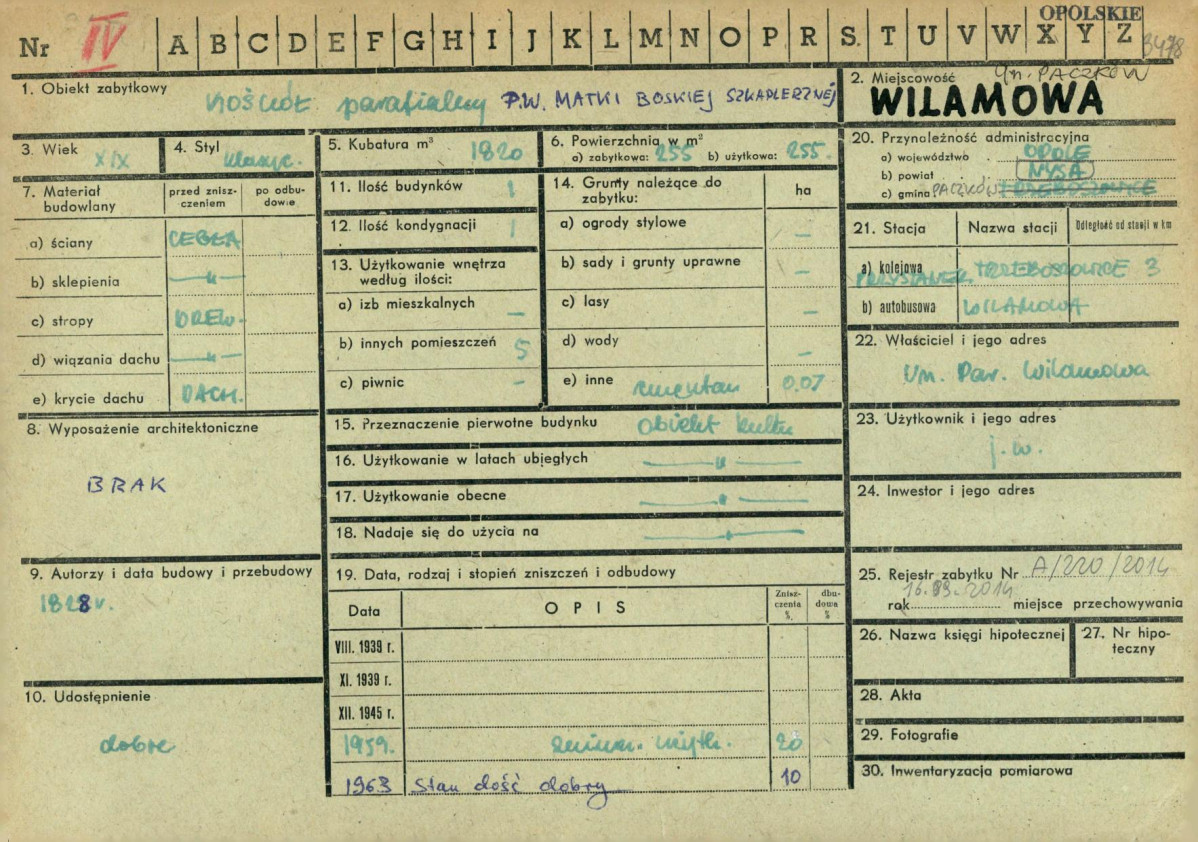 OPOLSKIE
Nr IV A B C D E F G H I J K L M N O P R S. T U V W X Y Z 3478
1. Obiekt zabytkowy
KOŚCIÓŁ parafialny P.W. MATKI BOSKIEJ SZKAPLERZNEJ
2. Miejscowość Gm. PACZKÓW
WILAMOWA
3. Wiek XIX
4. Styl klasyc.
5. Kubatura m³ 1820
6. Powierzchnia w m²
a) zabytkowa: 255 b) użytkowa: 255.
20. Przynależność administracyjna
a) województwo OPOLE
b) powiat NYSA
c) gmina PACZKÓW TRZEBOSZOWICE
7. Materiał budowlany
przed znisz-
czeniem
po odbu-
dowie
a) ściany CEGŁA
b) sklepienia —„—
c) stropy DREW.
d) wiązania dachu —„—
e) krycie dachu DACH.
11. Ilość budynków 1
12. Ilość kondygnacji 1
13. Użytkowanie wnętrza
według ilości:
a) izb mieszkalnych —
b) innych pomieszczeń 5
c) piwnic —
14. Grunty należące do
zabytku:
ha
a) ogrody stylowe —
b) sady i grunty uprawne —
c) lasy
d) wody —
e) inne cmentarz 0,07
21. Stacja
Nazwa stacji
Odległość od stacji w km
a) kolejowa
PRZYSTANEK TRZEBOSZOWICE 3
b) autobusowa WILAMOWA
22. Właściciel i jego adres
Par. Wilamowa
23. Użytkownik i jego adres
j.w.
24. Inwestor i jego adres
8. Wyposażenie architektoniczne
BRAK
15. Przeznaczenie pierwotne budynku obiekt kultu
16. Użytkowanie w latach ubiegłych —„—
17. Użytkowanie obecne —„—
18. Nadaje się do użycia na —„—
9. Autorzy i data budowy i przebudowy
1828 r.
10. Udostępnienie
dobre
19. Data, rodzaj i stopień zniszczeń i odbudowy
Data
OPIS
Znisz-
czenia
%
dbu-
dowa
%
VIII. 1939 r.
XI. 1939 r.
XII. 1945 r.
1959. 20
1963 Stan dość dobry 10
25. Rejestr zabytku Nr A/220/2014
16.09.2014
rok miejsce przechowywania
26. Nazwa księgi hipotecznej
27. Nr hipo-
teczny
28. Akta
29. Fotografie
30. Inwentaryzacja pomiarowa